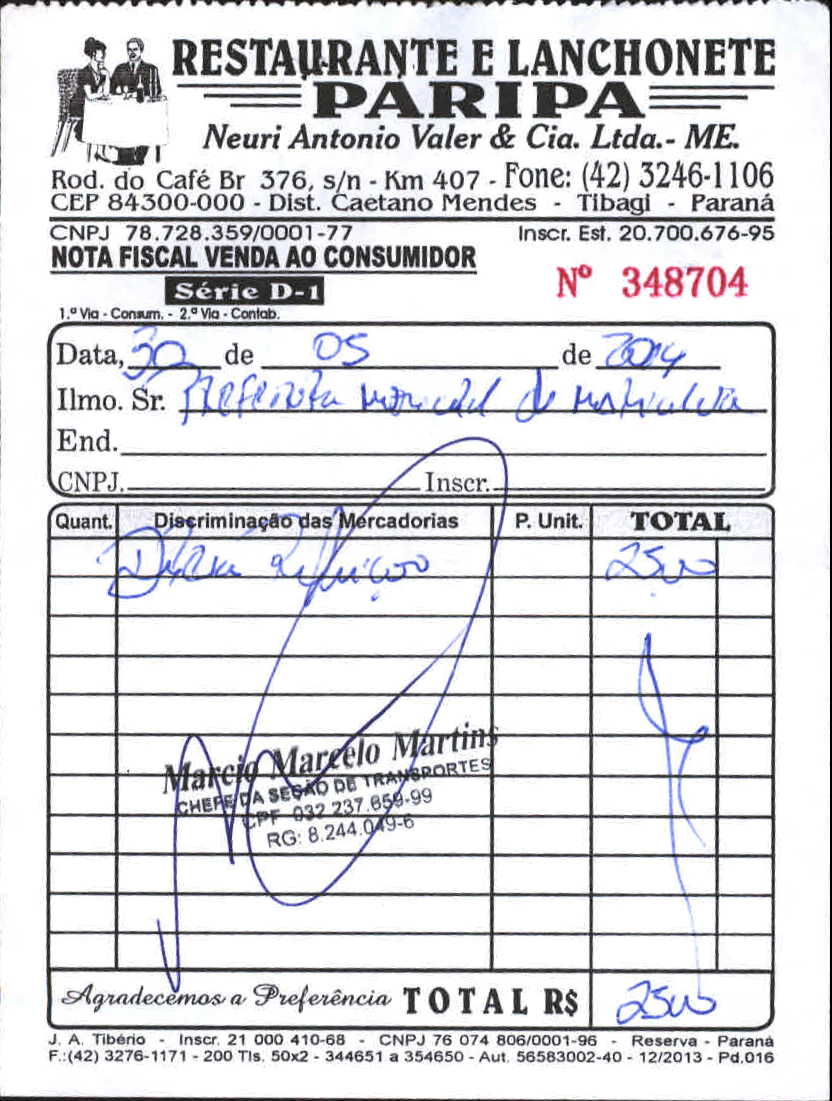 RESTAURANTE E LANCHONETE
PARIPA
Neuri Antonio Valer & Cia. Ltda.- ME.
Rod. do Café Br 376, s/n - Km 407 - Fone: (42) 3246-1106
CEP 84300-000 - Dist. Caetano Mendes - Tibagi - Paraná
CNPJ 78.728.359/0001-77 Inscr. Est. 20.700.676-95
NOTA FISCAL VENDA AO CONSUMIDOR
Série D-1 Nº 348704
1.ª Via - Consum. - 2.ª Via - Contab.
Data, 30 de 05 de 2014
Ilmo. Sr. Prefeitura Municipal de
End.
CNPJ. Inscr.
Quant. Discriminação das Mercadorias P. Unit. TOTAL
Refeição 2500
Marcio Marcelo Martins
CHEFE DA SEÇÃO DE TRANSPORTES
CPF 032 237.859-99
RG: 8.244.049-6
Agradecemos a Preferência TOTAL R$ 2500
J. A. Tibério - Inscr. 21 000 410-68 - CNPJ 76 074 806/0001-96 - Reserva - Paraná
F.:(42) 3276-1171 - 200 Tls. 50x2 - 344651 a 354650 - Aut. 56583002-40 - 12/2013 - Pd.016